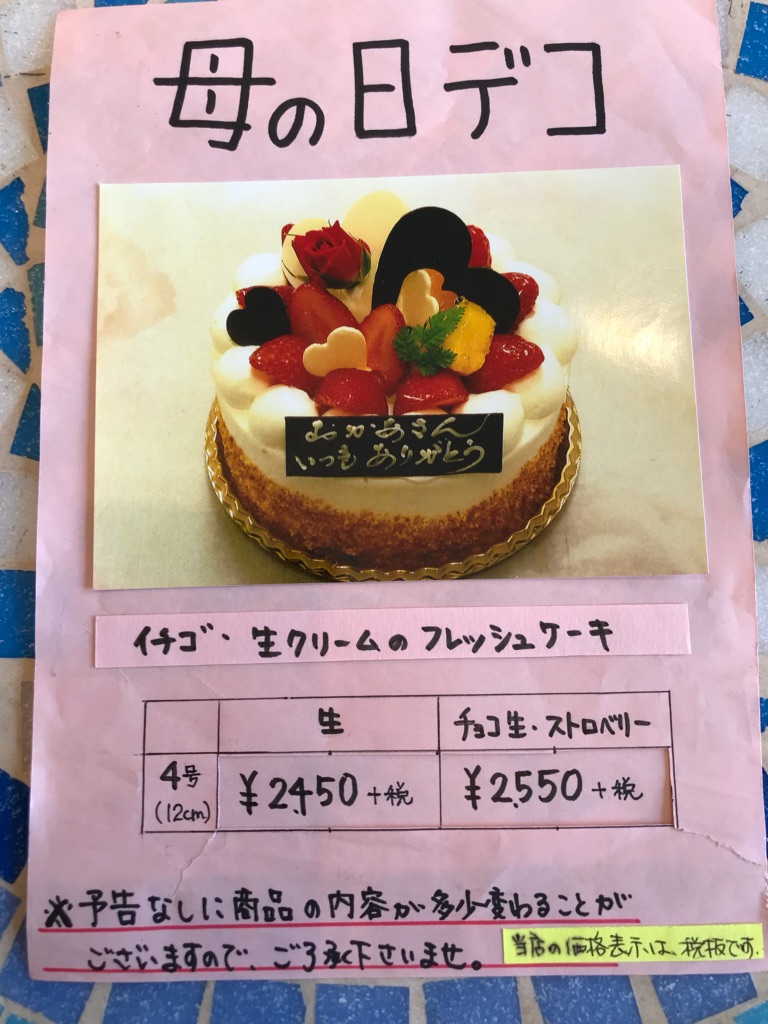 母の日デコ
おかあさん
いつもありがとう
イチゴ・生クリームのフレッシュケーキ
生 チョコ生・ストロベリー
4号 ¥2,450+税 ¥2,550+税
(12cm)
※予告なしに商品の内容が多少変わることが
ございますので、ご了承下さいませ。
当店の価格表示は、税抜です.